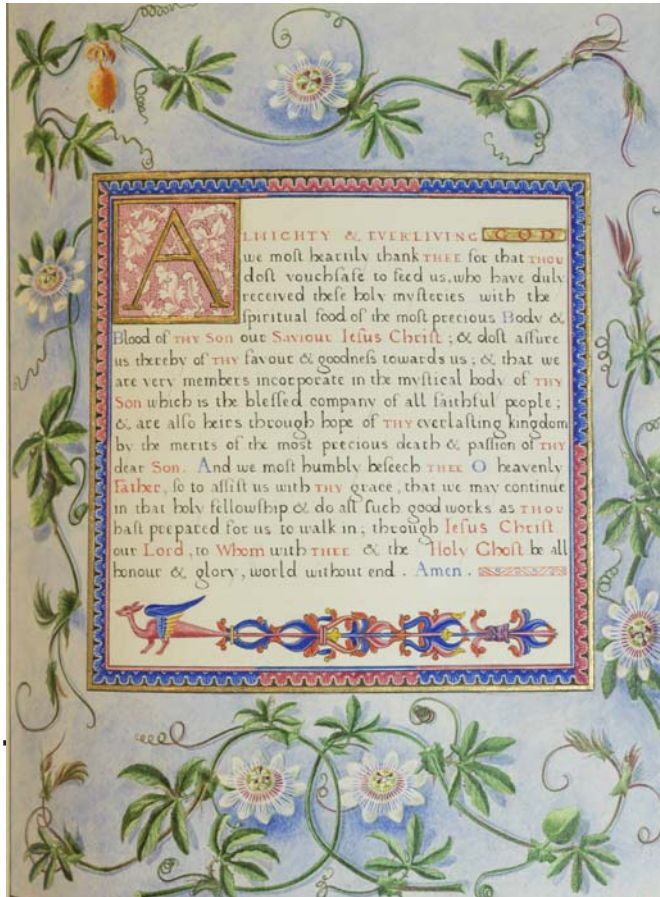 ALMIGHTY & EVERLIVING GOD
we moſt heartily thank THEE for that THOU
doſt vouchſafe to feed us, who have duly
received theſe holy myſteries with the
ſpiritual food of the moſt precious Body &
Blood of THY Son our Saviour Ieſus Chriſt ; & doſt aſſure
us thereby of THY favour & goodneſs towards us ; & that we
are very members incorporate in the myſtical body of THY
Son which is the bleſſed company of all faithful people ;
& are alſo heirs through hope of THY everlaſting kingdom
by the merits of the most precious death & paſſion of THY
dear Son. And we moſt humbly beſeech THEE O heavenly
Father, ſo to aſſiſt us with THY grace, that we may continue
in that holy fellowſhip & do all ſuch good works as THOU
haſt prepared for us to walk in ; through Ieſus Chriſt
our Lord, to Whom with THEE & the Holy Ghoſt be all
honour & glory, world without end. Amen.